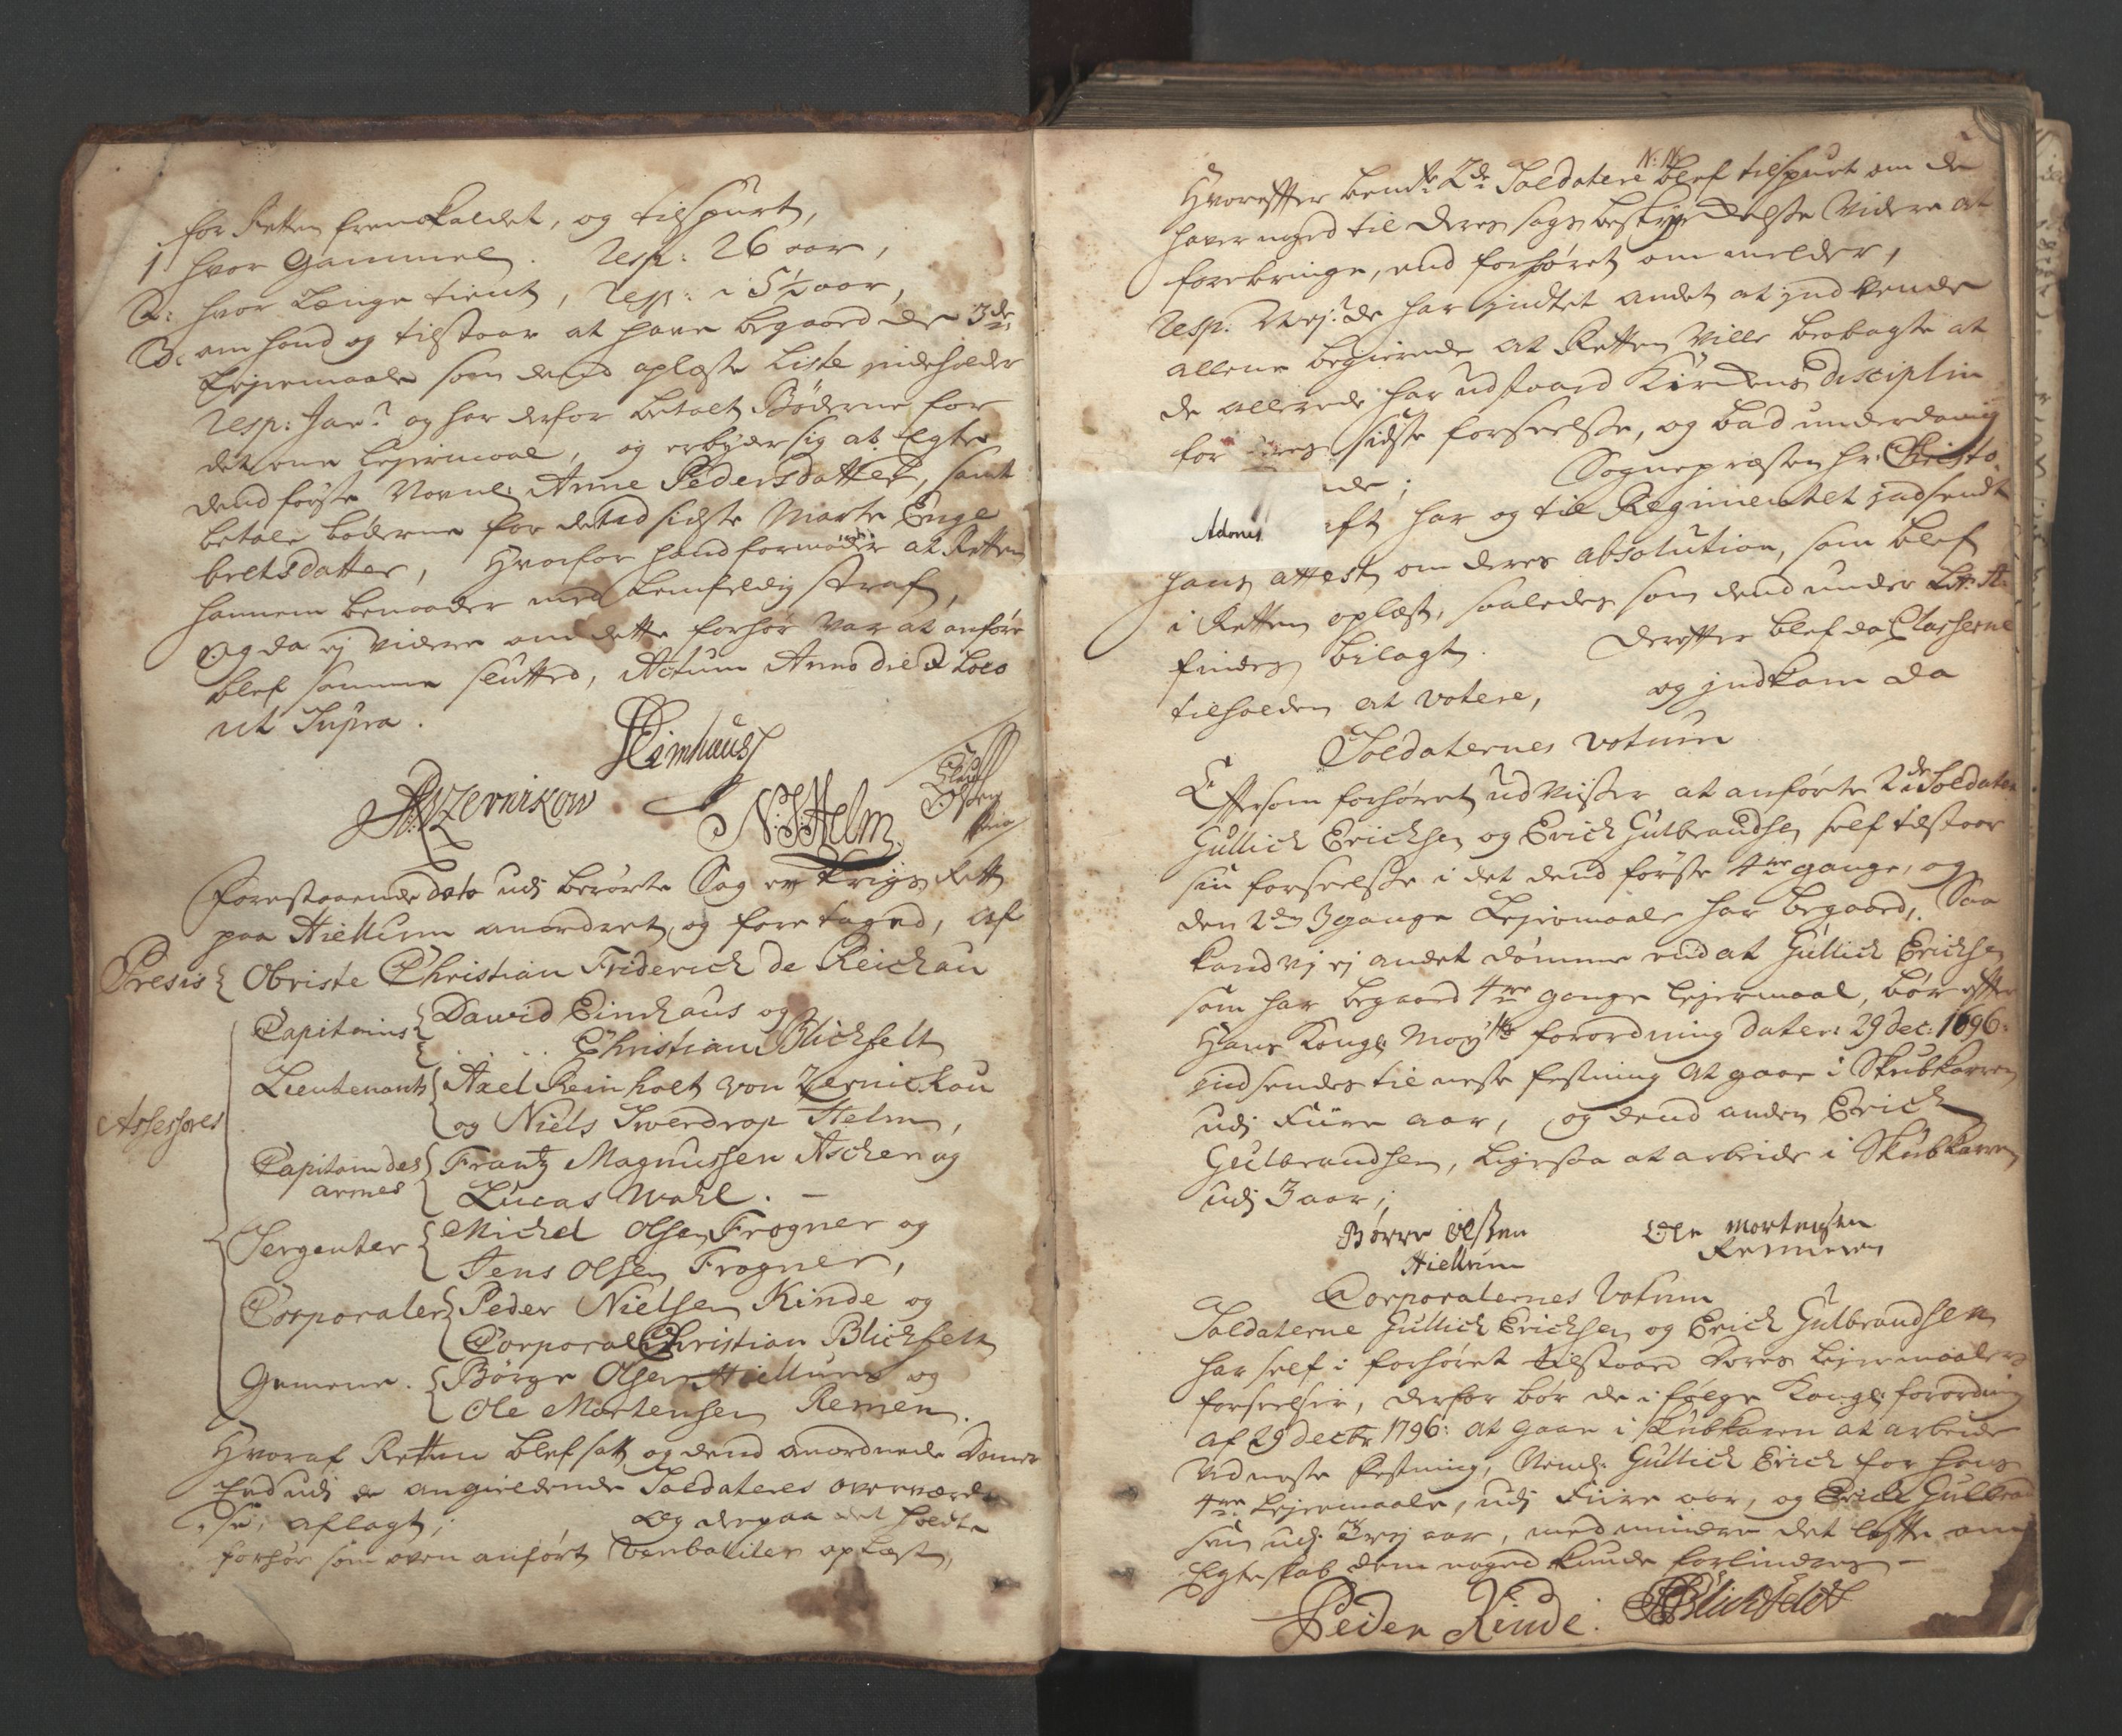 for Retten fremkaldet, og tilspurt,
1 hvor Gammel. Resp: 26 aar,
2: hvor Længe tient, Resp: i 5½ aar,
3: om hand og tilstaar at have begaaed de 3de
Lejermaale som dend oplæste Liste indeholder
Resp: Ja? og har derfor betalt Bøderne for
det ene Lejermaal, og erbyder sig at Egte
dend første Navnl: Anne Pedersdatter, samt
betale bøderne for det sidste Marte Enge
bretsdatter, Hvorfor hand formoder at Retten
hannem benaader med Lemfeldig straf,
Og da ej videre om dette forhør var at anføre
blef samme slutted, Actum Anno die & Loco
ut Supra.
DEinhaus
ARVZernikow
N:S:Helm
Forestaaende dato udj berørte Sag er Krigs Rett
paa Hiellum anordnet og foretaged, af
Presis { Obriste Christian Friderich de Reichau
Assessores
Capitains { David Einhaus og
Christian Blichfelt
Lieutenants { Axel Reinholt von Zernichau
og Niels Swerdrop Helm,
Capitain des armes { Frantz Magnussen Ascher og
Lucas Wahl. –
Sergenter { Michel Olsen Frogner og
Jens Olsen Frogner,
Corporaler { Peder Nielsen Kinde og
Corporal Christian Blichfelt
Gemene. { Børge Olsen Hiellum og
Ole Mortensen Remen.
Hvoraf Retten blef satt og dend anordnede Dommer
Eed udj de angieldende Soldaters overværel
se, aflagt; Og derpaa det holdte
forhør som oven anført verbaliter oplæst,
N: N:
Hvoreffter bemte 2de Soldatere blef tilspurt om de
haver noged til deres sags bestyrkelse videre at
forebringe, end forhøret om melder,
Resp. Nej? de har indtet andet at indvende
allene begierede at Retten ville beobagte at
de allerede har udstaaed Kirkens disciplin
for deres sidste forseelsse, og bad underdanig
Sognepræsten hr. Christo
Adonis
har og til Regimentet indsendt
hans attest om deres absolution, som blef
i Retten oplæst, saaledes som dend under Litr: A:
findes bilagt. Dereffter blef da Classerne
tilholden at votere, og indkom da
Soldaternes votum
Effersom forhøret udviisser at anførte 2de Soldater
Gullich Erichsen og Erich Gulbrandsen self tilstaar
sin forseelsse i det dend første 4re gange, og
den 2den 3 gange Lejermaale har begaaed, Saa
kand vj ej andet dømme end at Gullich Erichsen
som har begaaed 4re gange lejermaal, bør effter
Hans Kongl: Mayts forordning dater: 29 Dec: 1696:
indsendes til neste festning at gaae i Skubkarren
udj Fiire aar, og dend anden Erich
Gulbrandsen, ligesaa at arbeide i Skubkarren
udj 3 aar;
Børre Olssen Ole Mortensen
Hiellum Remmen
Corporalernes Votum
Soldaterne Gullich Erichsen og Erich Gulbrandsen
har self i forhøret tilstaaed deres lejermaalers
forseelser, derfor bør de i følge Kongl: forordning
af 29 Decbr 1796: at gaae i skubkaren at arbeide
ved neste festning, Neml: Gullich Erich for hans
4re Lejermaale, udj Fiire aar, og Erich Gulbrand
sen udj Trej aar, med mindre det løffte om
Egteskab dem noged kunde forlindres –
Peder Kinde. CBlichfeldt